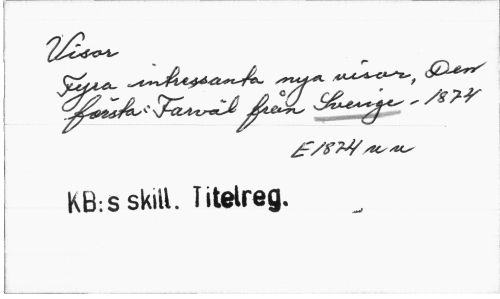 Visor
Fyra intressanta nya visor, Den
första: Farväl från Sverige - 1874
E1874 n n
KB:s skill. Titelreg.